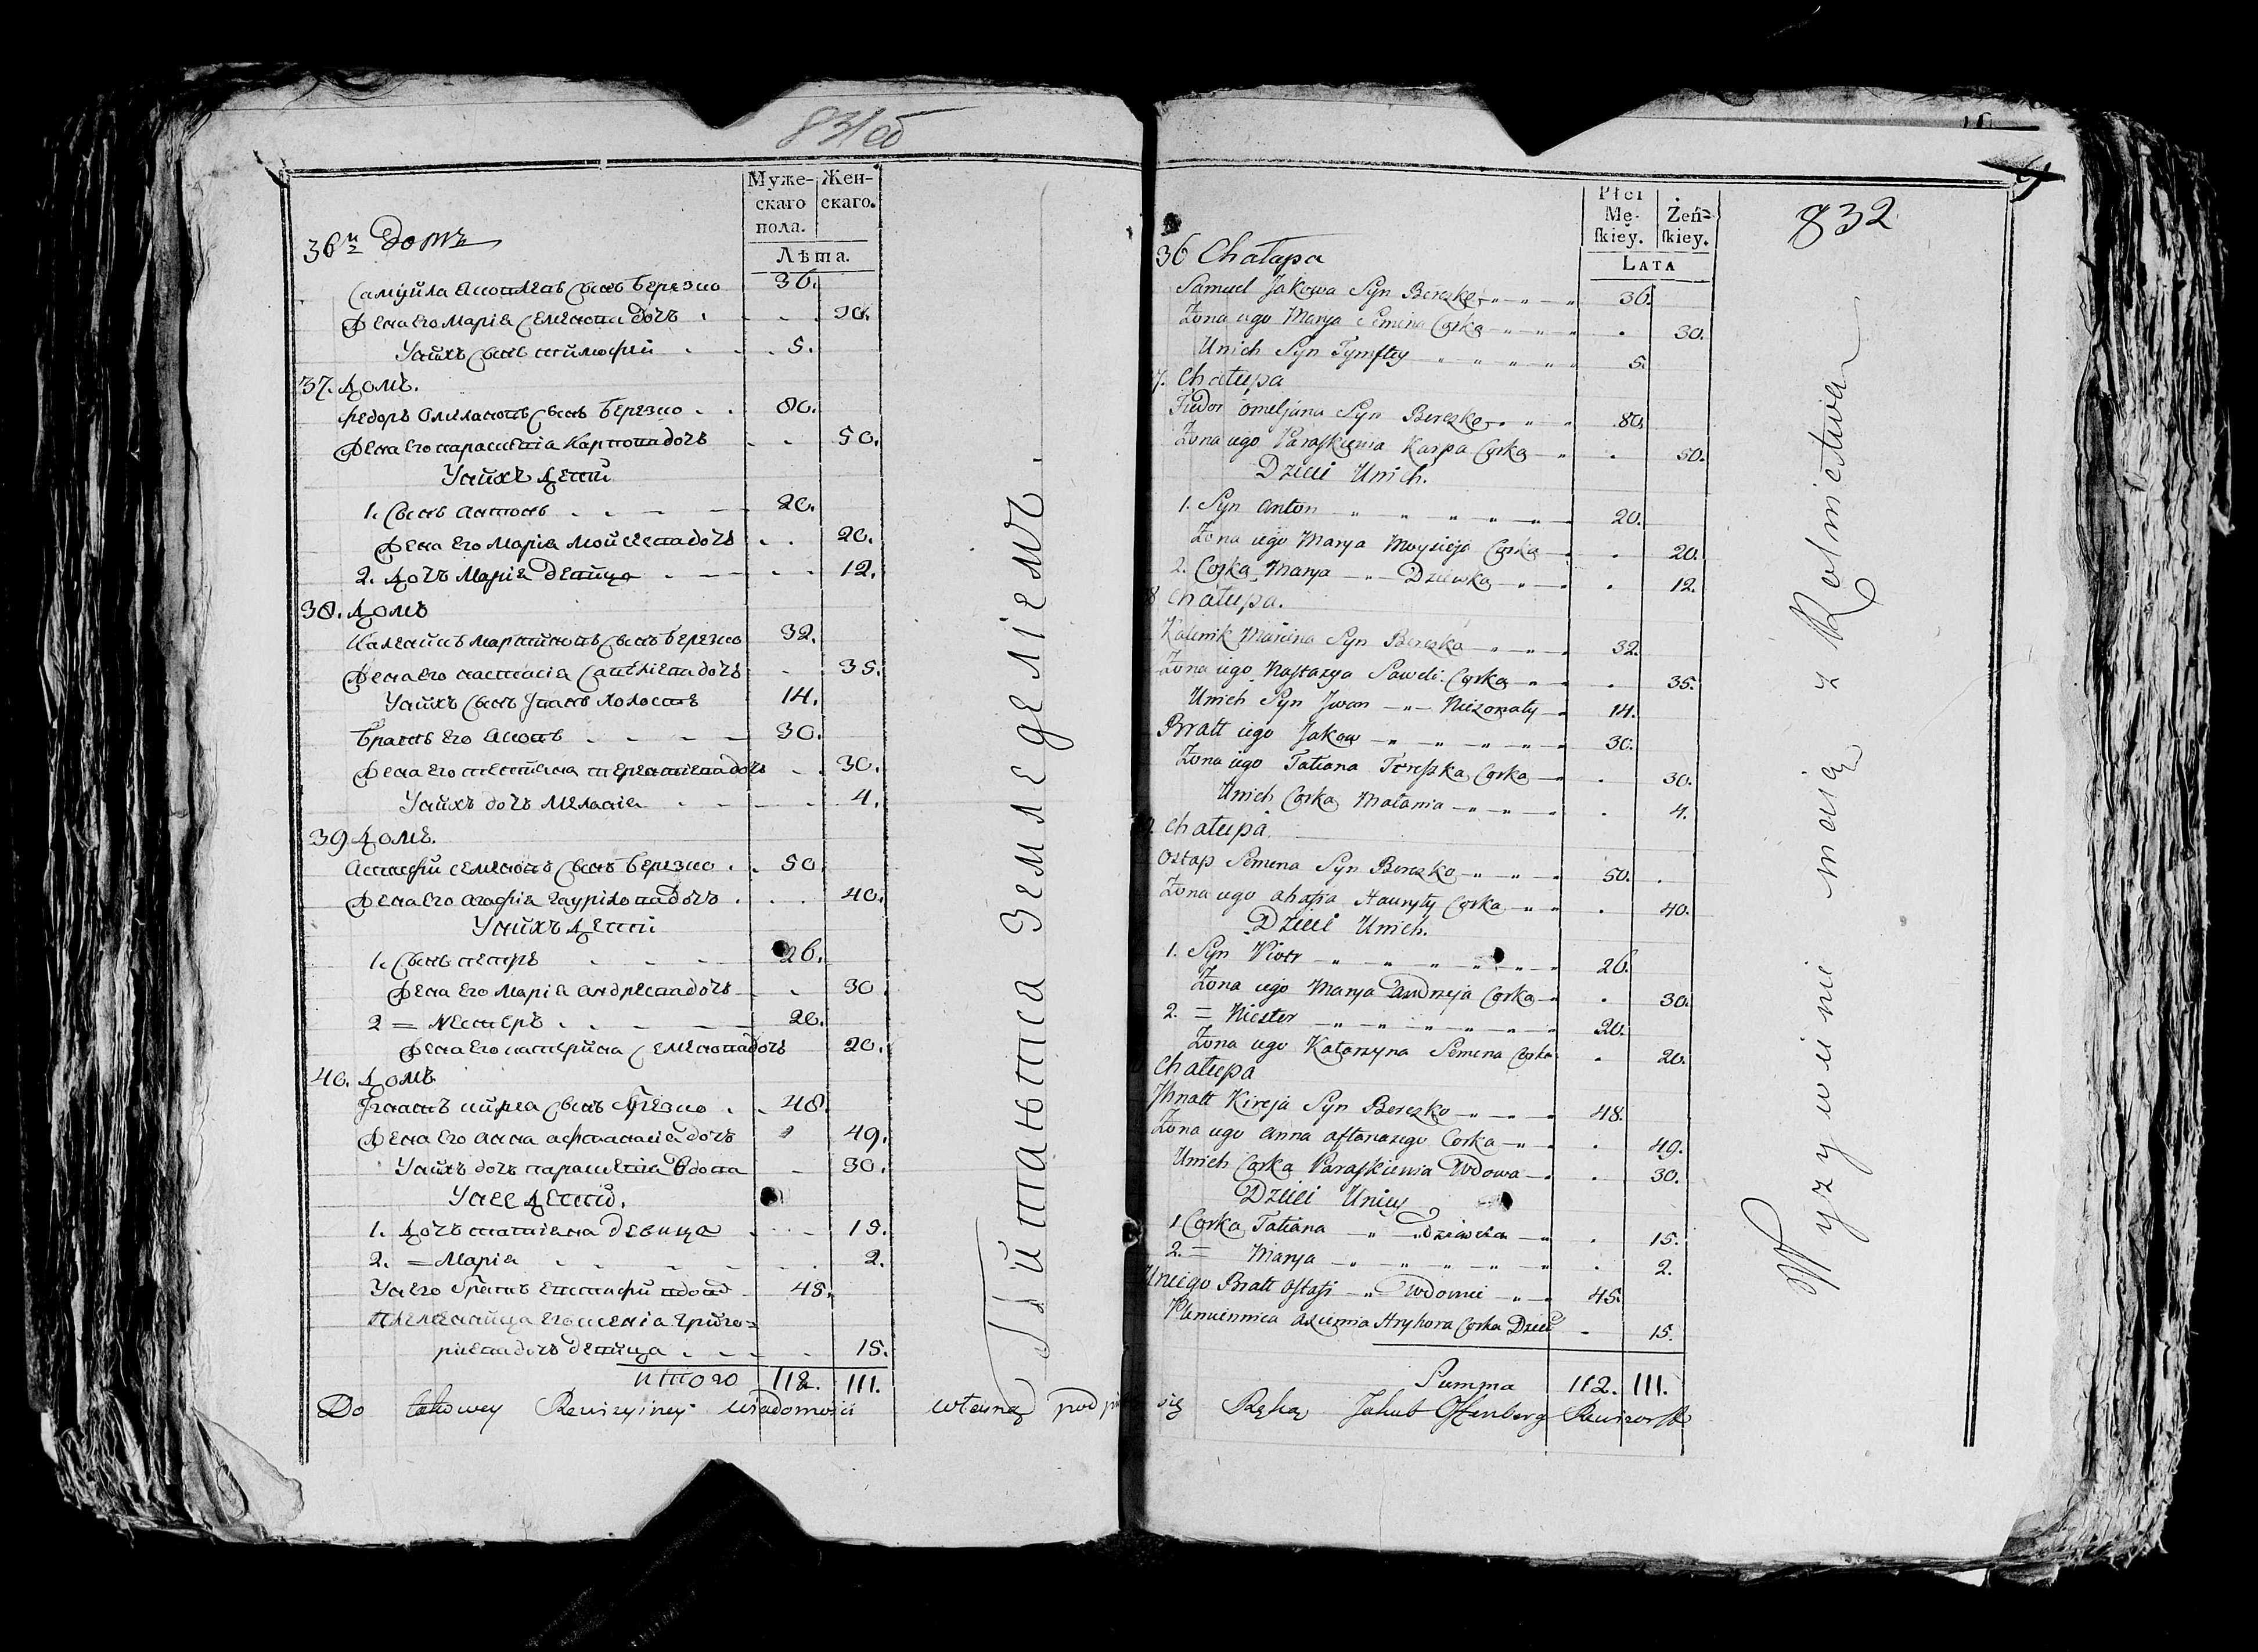 831об
Муже-
скаго
пола.
Жен-
скаго.
Лѣта.
36й домъ
Самуйла Яковлевъ Сынъ Березко 36.
Жена его Марiя Семенова дочь 30.
У нихъ Сынъ Тимофей 5.
37. Домъ.
Федоръ Омеляновъ Сынъ Березко 80.
Жена его Парасковiя Карпова дочь 50.
У нихъ Дети
1. Сынъ Антонъ 20.
Жена его Марiя Мойсеева дочь 20.
2. Дочь Марiя девица 12.
38. Домъ
Каленикъ Мартиновъ Сынъ Березко 32.
Жена его Настасiя Савельева дочь 35.
У нихъ Сынъ Iванъ холостъ 14.
Братъ его Яковъ 30.
Жена его Терентiева дочь 30.
У нихъ дочь Меланiя 4.
39 Домъ.
Астафiй Семеновъ Сынъ Березко 50
Жена его Агафiя Гаурiлова дочь 40.
У нихъ Дети
1. Сынъ Петръ 26.
Жена его Марiя Андреева дочь 30
2 = Нестеръ 20.
Жена его Катерина Семенова дочь 20.
40. Домъ.
Iгнатъ Кирея Сынъ Березко 48.
Жена его Анна Афтанасiя дочь 49.
У нихъ дочь Парасковiя Вдова 30.
У нее Дети.
1. Дочь Татiяна девица 15.
2. = Марiя 2.
У него братъ Евстафiй вдов 45.
Племянница его Ксенiя Григо=
риева дочь девица 15.
итого 112. 111.
Питаются Земледелiемъ.
Płci
Mę-
skiey.
Żeń=
skiey.
LATA
832
36 Chałupa
Samuel Jakowa Syn Berezko 36.
Żona iego Marya Semena Corka 30.
Unich Syn Tymftey 5.
7. Chałupa
Fiedor Omeljana Syn Berezko 80.
Żona iego Paraskiewia Karpa Corka 50.
Dzieci Unich.
1. Syn Anton 20.
Żona iego Marya Moysieja Corka 20.
2. Corka Marya Dziewka 12.
8 Chałupa.
Kalenik Marcina Syn Berezko 32.
Żona iego Nastazya Saweli Corka 35.
Unich Syn Jwan Nieżonaty 14.
Bratt iego Jakow 30.
Żona iego Tatiana Tereszka Corka 30.
Unich Corka Małania 4.
Chałupa
Ostap Semena Syn Berezko 50.
Żona iego Ahafia Hauryły Corka 40.
Dzieci Unich.
1. Syn Piotr 26.
Żona iego Marya Andrzeja Corka 30.
2. = Niester 20.
Żona iego Katarzyna Semena Corka 20.
Chałupa
Jhnatt Kireja Syn Berezko 48.
Żona iego Anna Aftanazego Corka 49.
Unich Corka Paraskiewia Wdowa 30.
Dzieci Uniey
1 Corka Tatiana Dziewka 15.
2. = Marya 2.
Uniego Bratt Ostafi Wdowiec 45.
Plemiennica Hryhora Corka Dziew 15.
Summa 112. 111.
Wyzywienie maią z Rolnictwa
Do takowey Rewizyiney wiadomości własną podpi się Ręką Jakub Offenberg Rewizor